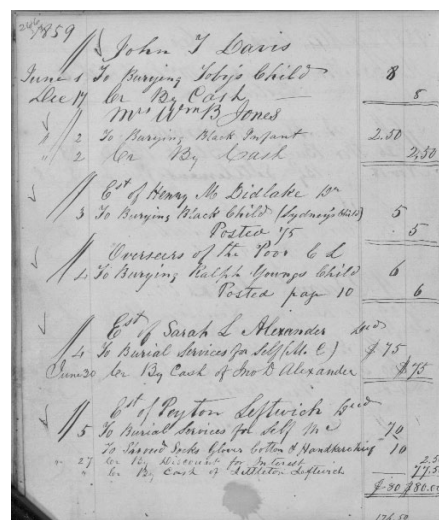 246
1859
John T Davis
June 1 To Burying Toby's Child 8
Dec 17 Cr By Cash 8
Mrs Wm B Jones
" 2 To Burying Black Infant 2.50
" 2 Cr By Cash 2.50
Est of Henry M Didlake Dr
3 To Burying Black Child (Sydney's Child) 5
Posted 75 5
Overseers of the Poor C L
4 To Burying Ralph Youngs Child 6
Posted page 10 6
Est of Sarah L Alexander Decd
4 To Burial Services for Self (M.C) $75
June 30 Cr By Cash of Jno D Alexander $75
Est of Peyton Leftwich Decd
5 To Burial Services for Self Mc 70
To Shroud Socks Gloves Cotton & Handkerchief 10
" 27 Cr By Discount for Interest 2.50
" Cr By Cash of Littleton Leftwich 77.50
$80 $80.00
176.50